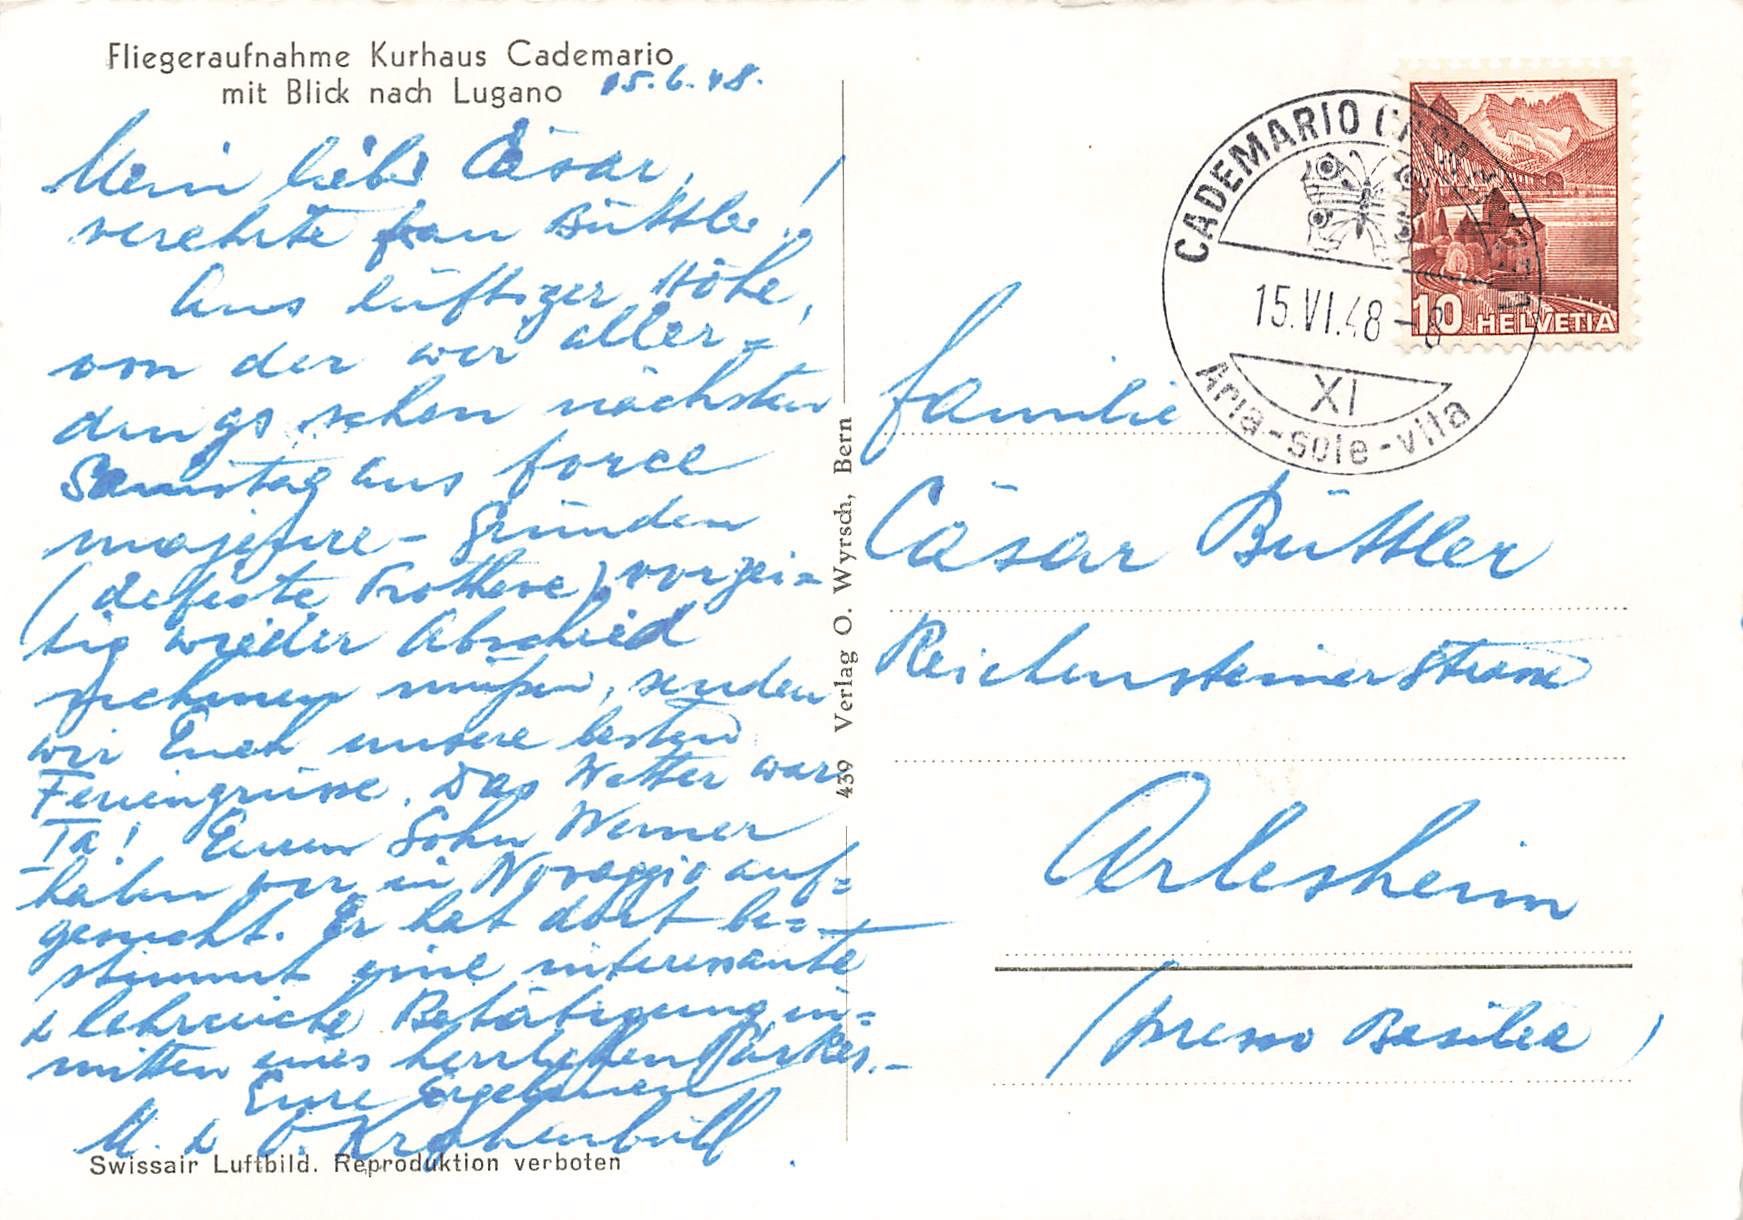 Fliegeraufnahme Kurhaus Cademario
mit Blick nach Lugano
15.6.48.
Mein lieber Cäsar,
verehrte Frau Büttler!
Aus luftiger Höhe,
von der wir aller-
dings schon nächsten
Samstag aus force
majeure-Gründen
(defecte Prothese) vorzei=
tig wieder Abschied
nehmen müßen, senden
wir Euch unsere besten
Feriengrüsse. Das Wetter war
Ia! Euren Sohn Werner
haben wir in Novaggio auf=
gesucht. Er hat dort be=
stimmt eine interessante
& lehrreiche Betätigung in=
mitten eines herrlichen Parkes.-
Eure Ergebenen
M. & O. Krähenbühl
Swissair Luftbild. Reproduktion verboten
439 Verlag O. Wyrsch, Bern
CADEMARIO
15.VI.48-8
XI
Aria-sole-vita
10 HELVETIA
Familie
Cäsar Büttler
Reichensteinerstrasse
Arlesheim
(presso Basilea)